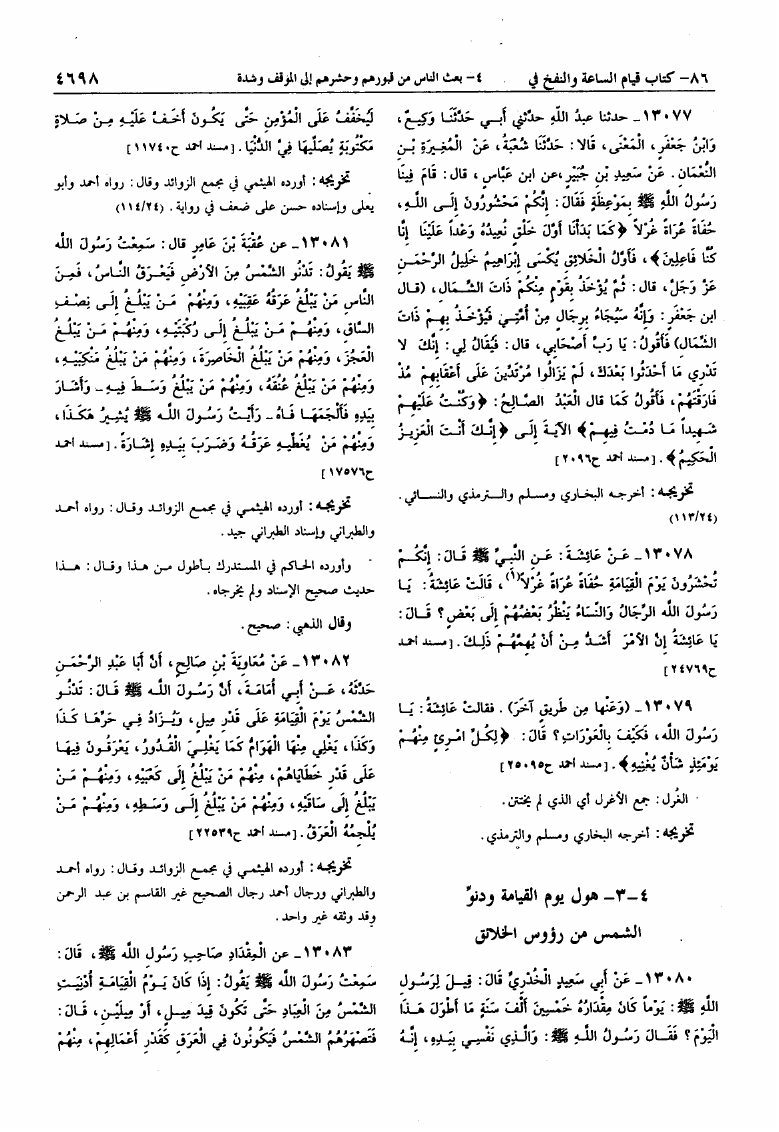 ٨٦- كتاب قيام الساعة والنفخ في . ٤- بعث الناس من قبورهم وحشرهم إلى الموقف وشدة ٤٦٩٨
١٣٠٧٧- حدثنا عبدُ اللهِ حدثني أبي حَدَّثَنَا وَكِيعٌ،
وَابْنُ جَعْفَرٍ، الْمَعْنَى، قَالا: حَدَّثَنَا شُعْبَةُ، عَنْ الْمُغِيرَةِ بْنِ
النُّعْمَانِ. عَنْ سَعِيدِ بْنِ جُبَيْرٍ، عن ابنِ عَبَّاسٍ، قال: قَامَ فِينَا
رَسُولُ اللهِ ﷺ بِمَوْعِظَةٍ فَقَالَ: إِنَّكُمْ مَحْشُورُونَ إِلَى اللهِ،
حُفَاةً عُرَاةً غُرْلاً ﴿كَمَا بَدَأْنَا أَوَّلَ خَلْقٍ نُعِيدُهُ وَعْداً عَلَيْنَا إِنَّا
كُنَّا فَاعِلِينَ﴾، فَأَوَّلُ الْخَلائِقِ يُكْسَى إِبْرَاهِيمُ خَلِيلُ الرَّحْمَنِ
عَزَّ وَجَلَّ، قال: ثُمَّ يُؤْخَذُ بِقَوْمٍ مِنْكُمْ ذَاتَ الشِّمَالِ، (قال
ابن جَعْفَرٍ: وَإِنَّهُ سَيُجَاءُ بِرِجَالٍ مِنْ أُمَّتِي فَيُؤْخَذُ بِهِمْ ذَاتَ
الشِّمَالِ) فَأَقُولُ: يَا رَبِّ أَصْحَابِي، قال: فَيُقَالُ لِي: إِنَّكَ لا
تَدْرِي مَا أَحْدَثُوا بَعْدَكَ، لَمْ يَزَالُوا مُرْتَدِّينَ عَلَى أَعْقَابِهِمْ مُذْ
فَارَقْتَهُمْ، فَأَقُولُ كَمَا قال الْعَبْدُ الصَّالِحُ: ﴿وَكُنْتُ عَلَيْهِمْ
شَهِيداً مَا دُمْتُ فِيهِمْ﴾ الآيَةَ إِلَى ﴿إِنَّكَ أَنْتَ الْعَزِيزُ
الْحَكِيمُ﴾. [مسند أحمد ح٢٠٩٦]
تخريجه: أخرجه البخاري ومسلم والترمذي والنسائي.
(١١٣/٢٤)
١٣٠٧٨- عَنْ عَائِشَةَ: عَنِ النَّبِيِّ ﷺ قَالَ: إِنَّكُمْ
تُحْشَرُونَ يَوْمَ الْقِيَامَةِ حُفَاةً عُرَاةً غُرْلاً(١)، قَالَتْ عَائِشَةُ: يَا
رَسُولَ اللهِ الرِّجَالُ وَالنِّسَاءُ يَنْظُرُ بَعْضُهُمْ إِلَى بَعْضٍ؟ قَالَ:
يَا عَائِشَةُ إِنَّ الأمْرَ أَشَدُّ مِنْ أَنْ يُهِمَّهُمْ ذَلِكَ. [مسند أحمد
ح٢٤٧٦٩]
١٣٠٧٩- (وَعَنْها مِن طَرِيقٍ آخَرَ). فقالت عَائِشَةُ: يَا
رَسُولَ اللهِ، فَكَيْفَ بِالْعَوْرَاتِ؟ قَالَ: ﴿لِكُلِّ امْرِئٍ مِنْهُمْ
يَوْمَئِذٍ شَأْنٌ يُغْنِيهِ﴾. [مسند أحمد ح٢٥٠٩٥]
الغُرل: جمع الأغرل أي الذي لم يختتن.
تخريجه: أخرجه البخاري ومسلم والترمذي.
٤-٣- هول يوم القيامة ودنوِّ
الشمس من رؤوس الخلائق
١٣٠٨٠- عَنْ أَبِي سَعِيدٍ الْخُدْرِيِّ قَالَ: قِيلَ لِرَسُولِ
اللهِ ﷺ: يَوْماً كَانَ مِقْدَارُهُ خَمْسِينَ أَلْفَ سَنَةٍ مَا أَطْوَلَ هَذَا
الْيَوْمَ؟ فَقَالَ رَسُولُ اللهِ ﷺ: وَالَّذِي نَفْسِي بِيَدِهِ، إِنَّهُ
لَيُخَفَّفُ عَلَى الْمُؤْمِنِ حَتَّى يَكُونَ أَخَفَّ عَلَيْهِ مِنْ صَلاةٍ
مَكْتُوبَةٍ يُصَلِّيهَا فِي الدُّنْيَا. [مسند أحمد ح١١٧٤٠]
تخريجه: أورده الهيثمي في مجمع الزوائد وقال: رواه أحمد وأبو
يعلى وإسناده حسن على ضعف في رواية. (١١٤/٢٤)
١٣٠٨١- عن عُقْبَةَ بْنَ عَامِرٍ قال: سَمِعْتُ رَسُولَ اللهِ
ﷺ يَقُولُ: تَدْنُو الشَّمْسُ مِنَ الأَرْضِ فَيَعْرَقُ النَّاسُ، فَمِنَ
النَّاسِ مَنْ يَبْلُغُ عَرَقُهُ عَقِبَيْهِ، وَمِنْهُمْ مَنْ يَبْلُغُ إِلَى نِصْفِ
السَّاقِ، وَمِنْهُمْ مَنْ يَبْلُغُ إِلَى رُكْبَتَيْهِ، وَمِنْهُمْ مَنْ يَبْلُغُ
الْعَجُزَ، وَمِنْهُمْ مَنْ يَبْلُغُ الْخَاصِرَةَ، وَمِنْهُمْ مَنْ يَبْلُغُ مَنْكِبَيْهِ،
وَمِنْهُمْ مَنْ يَبْلُغُ عُنُقَهُ، وَمِنْهُمْ مَنْ يَبْلُغُ وَسَطَ فِيهِ- وَأَشَارَ
بِيَدِهِ فَأَلْجَمَهَا فَاهُ- رَأَيْتُ رَسُولَ اللهِ ﷺ يُشِيرُ هَكَذَا،
وَمِنْهُمْ مَنْ يُغَطِّيهِ عَرَقُهُ وَضَرَبَ بِيَدِهِ إِشَارَةً. [مسند أحمد
ح١٧٥٧٦]
تخريجه: أورده الهيثمي في مجمع الزوائد وقال: رواه أحمد
والطبراني وإسناد الطبراني جيد.
وأورده الحاكم في المستدرك بأطول من هذا وقال: هذا
حديث صحيح الإسناد ولم يخرجاه.
وقال الذهبي: صحيح.
١٣٠٨٢- عَنْ مُعَاوِيَةَ بْنِ صَالِحٍ، أَنَّ أَبَا عَبْدِ الرَّحْمَنِ
حَدَّثَهُ، عَنْ أَبِي أُمَامَةَ، أَنَّ رَسُولَ اللهِ ﷺ قَالَ: تَدْنُو
الشَّمْسُ يَوْمَ الْقِيَامَةِ عَلَى قَدْرِ مِيلٍ، وَيُزَادُ فِي حَرِّهَا كَذَا
وَكَذَا، يَغْلِي مِنْهَا الْهَوَامُّ كَمَا يَغْلِي الْقُدُورُ، يَعْرَقُونَ فِيهَا
عَلَى قَدْرِ خَطَايَاهُمْ، مِنْهُمْ مَنْ يَبْلُغُ إِلَى كَعْبَيْهِ، وَمِنْهُمْ مَنْ
يَبْلُغُ إِلَى سَاقَيْهِ، وَمِنْهُمْ مَنْ يَبْلُغُ إِلَى وَسَطِهِ، وَمِنْهُمْ مَنْ
يُلْجِمُهُ الْعَرَقُ. [مسند أحمد ح٢٢٥٣٩]
تخريجه: أورده الهيثمي في مجمع الزوائد وقال: رواه أحمد
والطبراني ورجال أحمد رجال الصحيح غير القاسم بن عبد الرحمن
وقد وثقه غير واحد.
١٣٠٨٣- عن الْمِقْدَادِ صَاحِبِ رَسُولِ اللهِ ﷺ، قَالَ:
سَمِعْتُ رَسُولَ اللهِ ﷺ يَقُولُ: إِذَا كَانَ يَوْمُ الْقِيَامَةِ أُدْنِيَتِ
الشَّمْسُ مِنَ الْعِبَادِ حَتَّى تَكُونَ قِيدَ مِيلٍ، أَوْ مِيلَيْنِ، قَالَ:
فَتَصْهَرُهُمُ الشَّمْسُ فَيَكُونُونَ فِي الْعَرَقِ كَقَدْرِ أَعْمَالِهِمْ، مِنْهُمْ